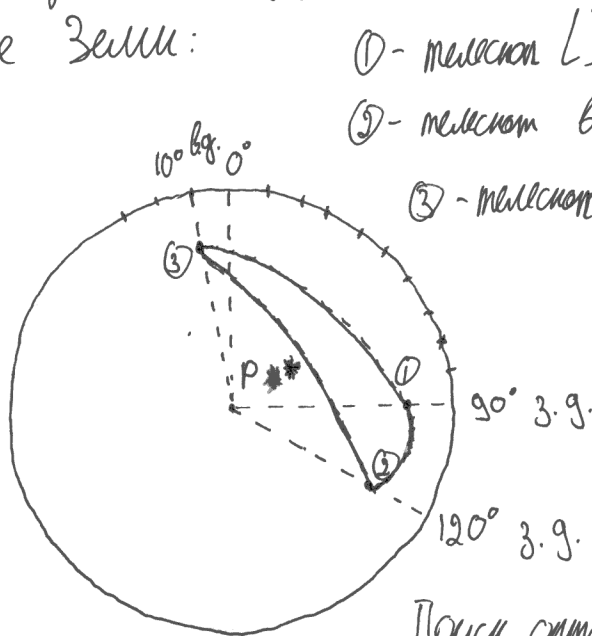 е Земли:
① - телескоп
② - телескоп в
③ - телескоп
10° в.д. 0°
③
P
①
90° з.д.
②
120° з.д.
Поиск